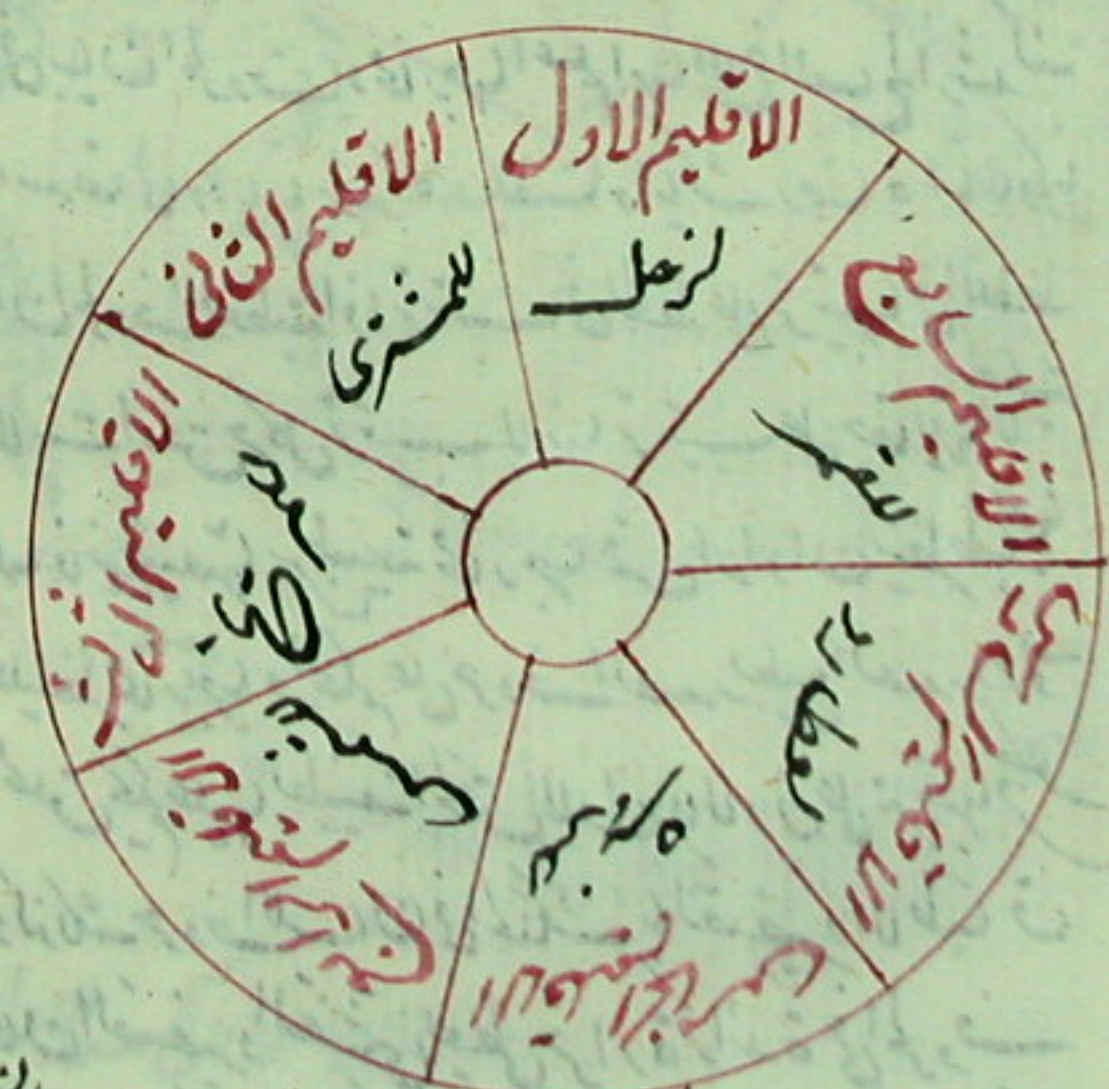 الاقليم الاول
لزحل
الاقليم الثانى
للمشترى
الاقليم الثالث
الاقليم الرابع
الاقليم الخامس
للزهره
الاقليم السادس
لعطارد
الاقليم السابع
للقمر